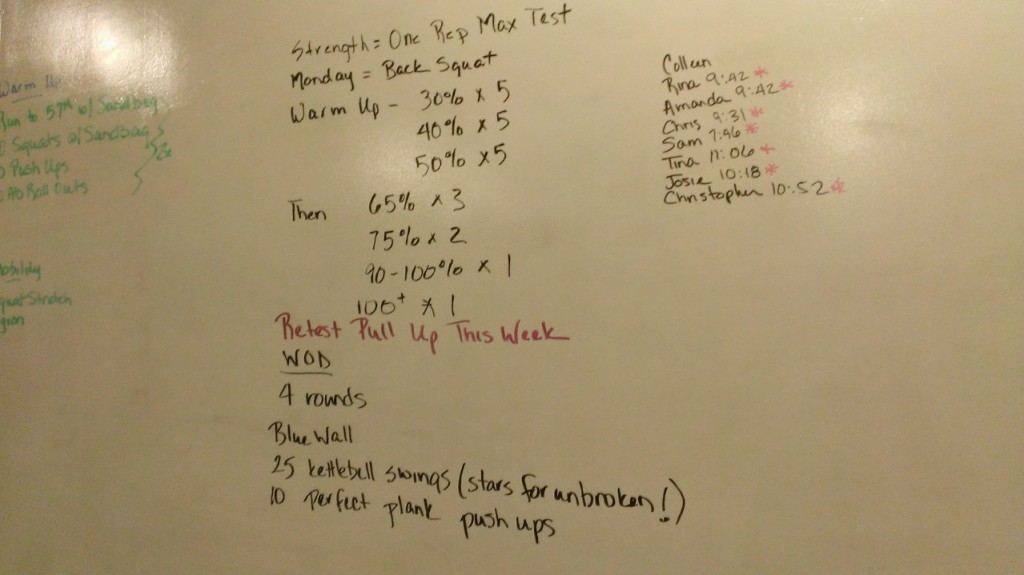 Warm Up
Run to 57th w/ Sandbag
Squats w/ Sandbag
Push Ups
Ab Roll Outs
2x
Squat Stretch
Strength = One Rep Max Test
Monday = Back Squat
Warm Up - 30% x 5
40% x 5
50% x 5
Then 65% x 3
75% x 2
90-100% x 1
100+ x 1
Retest Pull Up This Week
WOD
4 rounds
Blue Wall
25 kettlebell swings (stars for unbroken!)
10 perfect plank push ups
Colleen
Rina 9:42 *
Amanda 9:42 *
Chris 9:31 *
Sam 7:46 *
Tina 11:06 *
Josie 10:18 *
Christopher 10:52 *